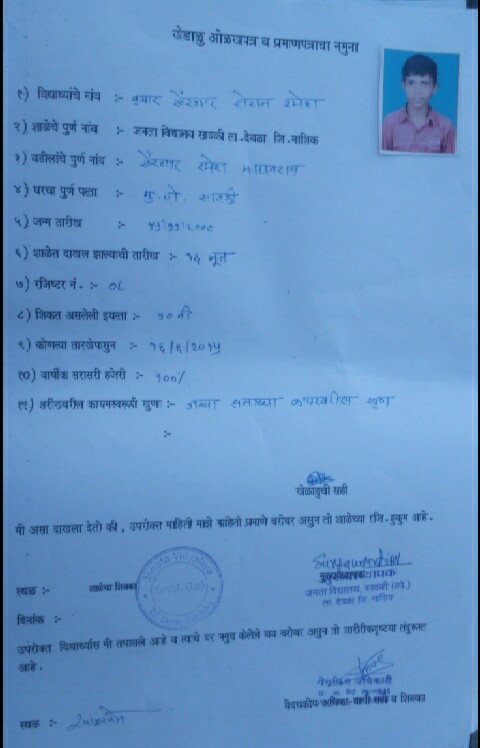 खेडाळु ओळखपत्र व प्रमाणपत्राचा नमुना
१) विद्यार्थ्याचे नांव :- कुमार खैरनार रोशन रमेश
२) शाळेचे पुर्ण नांव :- जनता विद्यालय ता. देवळा जि. नाशिक
३) वडीलांचे पुर्ण नांव :- खैरनार रमेश
४) घरचा पुर्ण पत्ता :- मु. पो.
५) जन्म तारीख :-
६) शाळेत दाखल झाल्याची तारीख :- १६ जून
७) रजिष्टर नं. :- ०८
८) शिकत असलेली इयत्ता :- १० वी
९) कोणत्या तारखेपासुन :- १६/६/२०१५
१०) वार्षीक सरासरी हजेरी :- १००%
११) शरीरावरील कायमस्वरूपी खुणा :- डाव्या हाताच्या खुण
:-
खेळाडुची सही
मी असा दाखला देतो की , उपरोक्त माहिती माझे माहिती प्रमाणे बरोबर असुन तो शाळेच्या रजि. हुकुम आहे.
स्थळ :- शाळेचा शिक्का
मुख्याध्यापक
जनता विद्यालय,
ता देवळा जि. नाशिक
दिनांक :-
उपरोक्त विद्यार्थ्यास मी तपासले आहे व त्याचे वर नमुद केलेले वय बरोबर असुन तो शारीरीकदृष्टया तंदुरूस्त
आहे .
वैद्यकिय अधिकारी
वैद्यकीय अधिका-याची सही व शिक्का
स्थळ :-